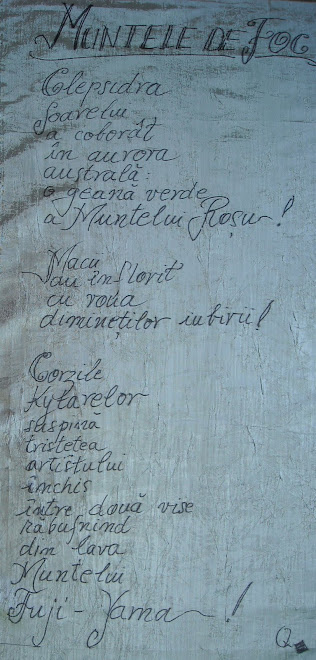 MUNTELE DE FOC
Clepsidra
Soarelui
a coborât
în aurora
australă:
o geană verde
a Muntelui Roșu!
Macii
sau înflorit
cu roua
dimineților iubirii!
Corzile
Kytarelor
suspină
tristețea
artistului
închis
între două vise
răbufnind
din lava
Muntelui
Fuji-Yama!
Q